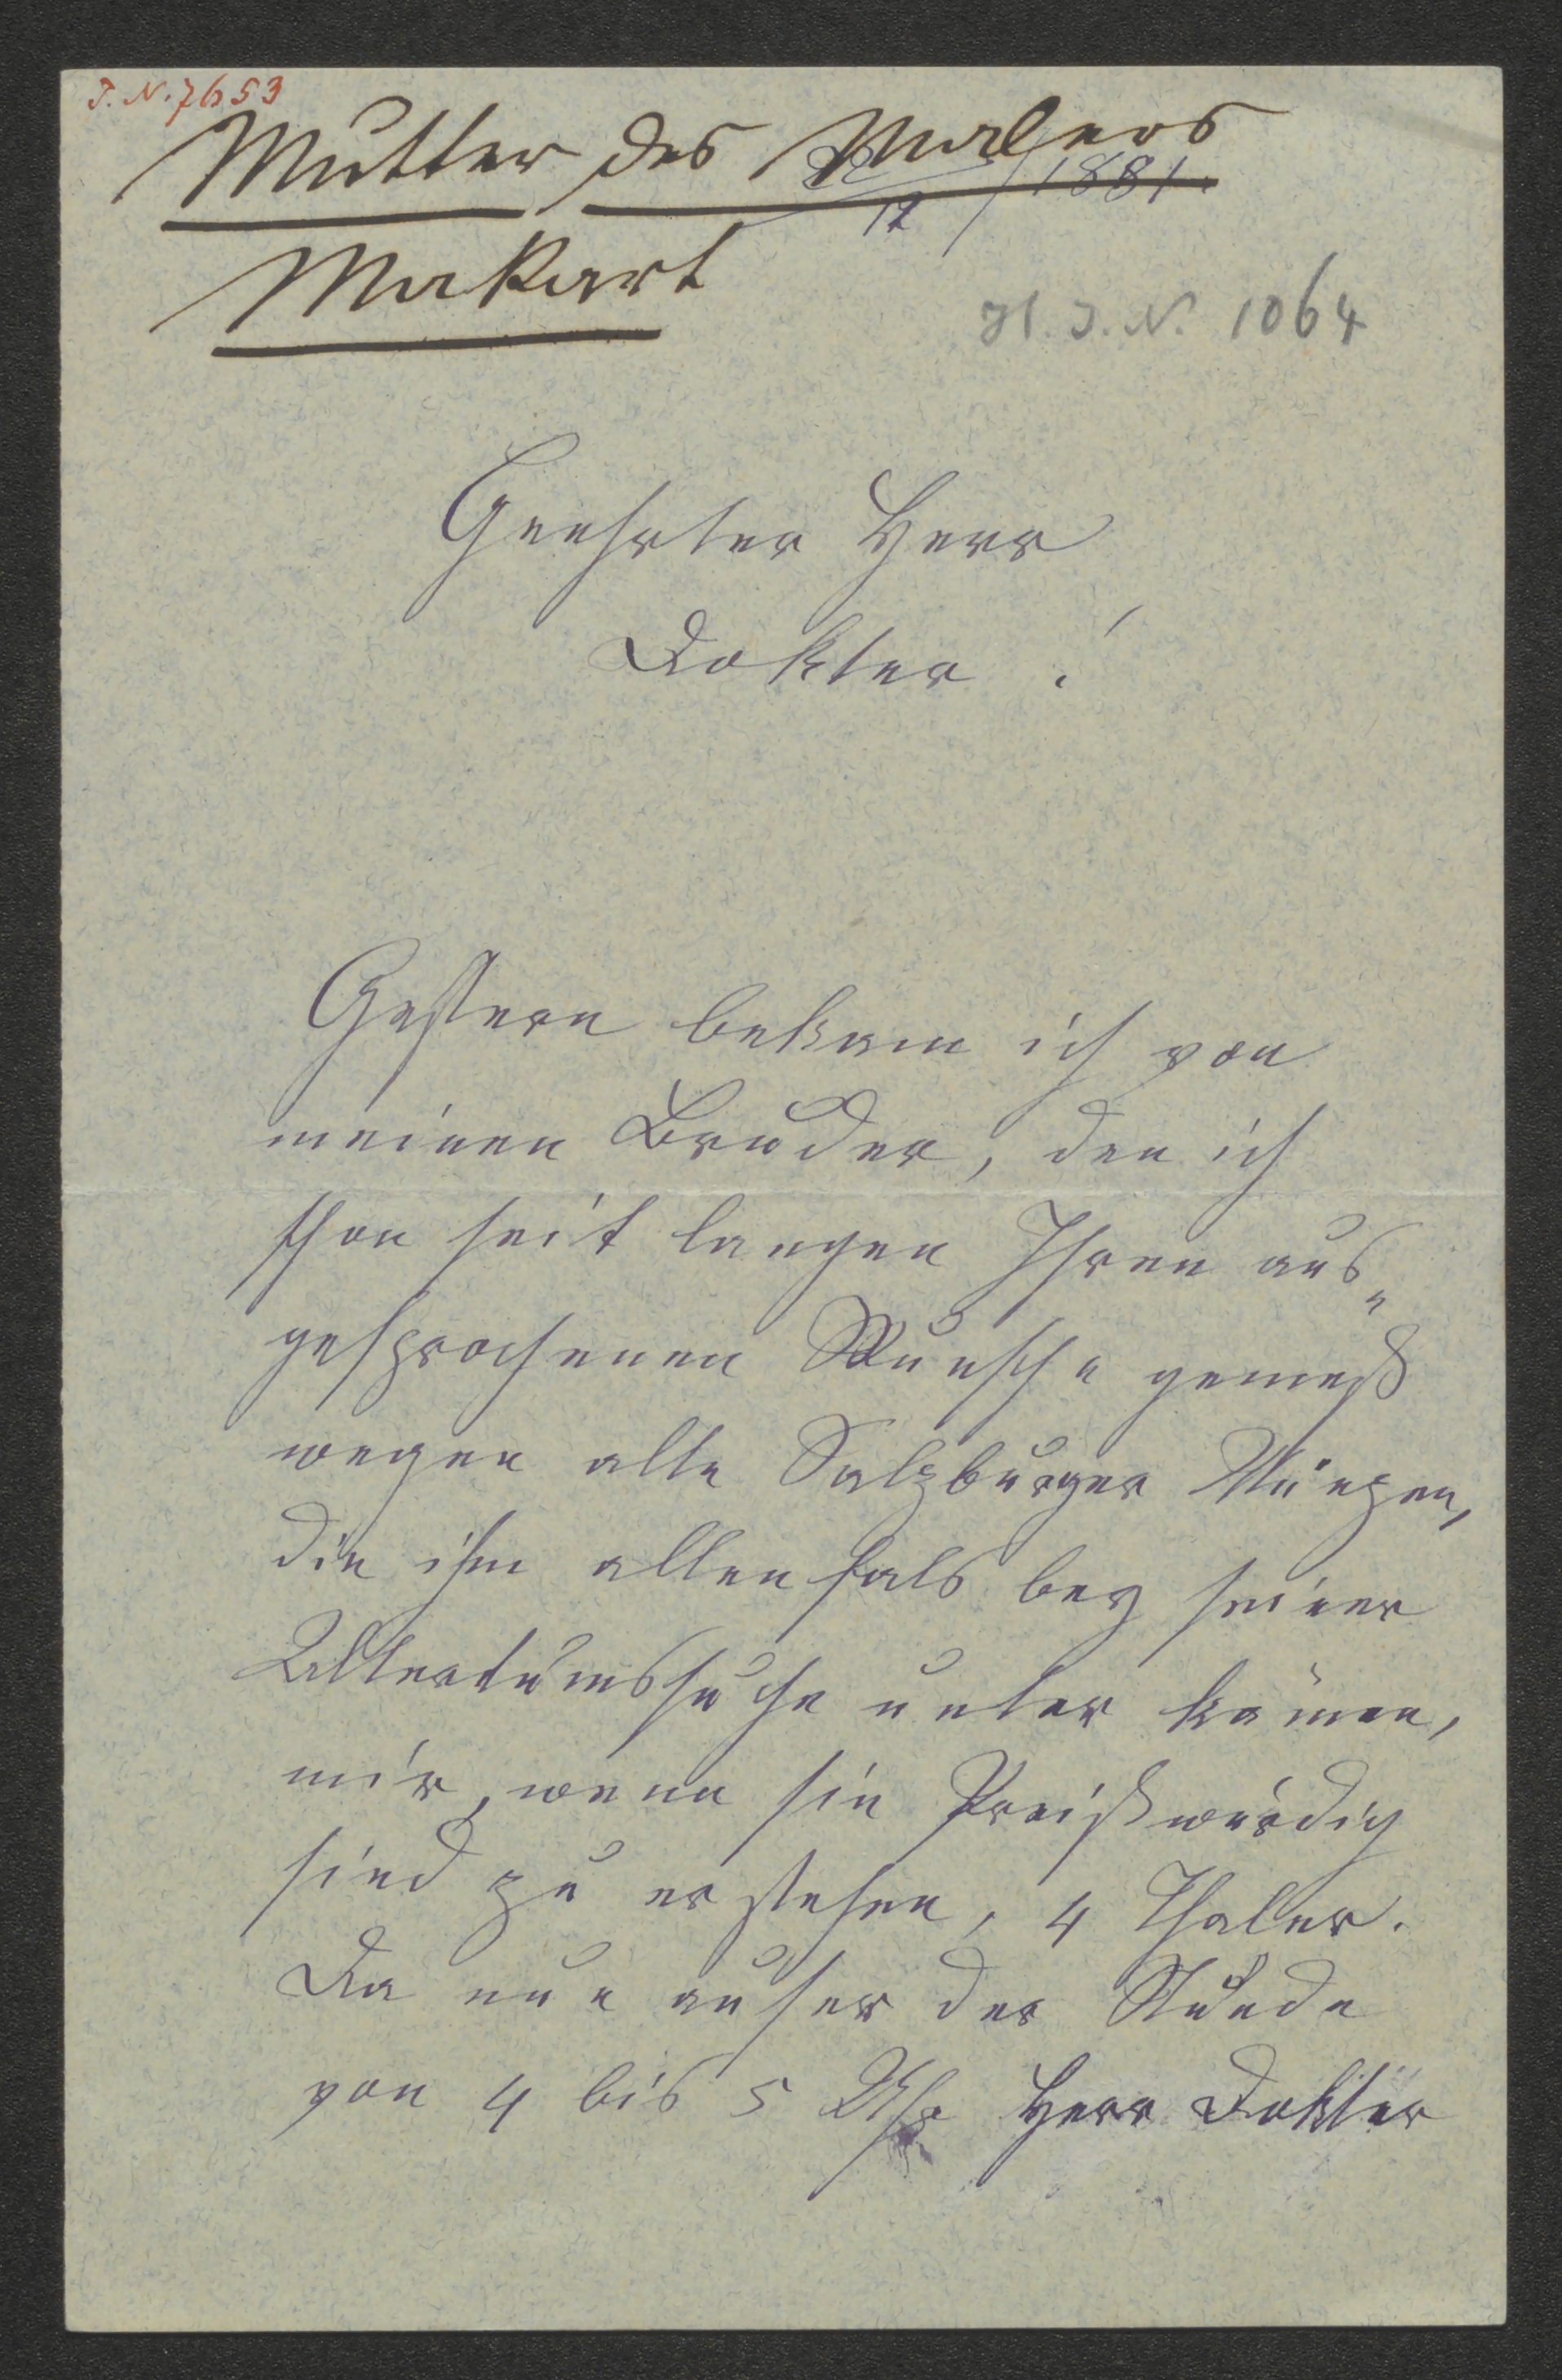 J. N. 7653
Mutter des Malers
22/12 1881.
Makart
H. J. N. 1064
Geehrter Herr
Dokter !
Gestern bekam ich von
meinen Bruder, den ich
schon seit langen Ihren aus„
gesprochenen Wunsche gemeß
wegen alte Salzburger Münzen,
die ihm allenfals bey seiner
Altertumssuche unter kämen,
mir, wenn sie Preißwürdig
sind zu erstehen, 4 Thaler.
Da nun außer der Stunde
von 4 bis 5 Uhr Herr Dokter